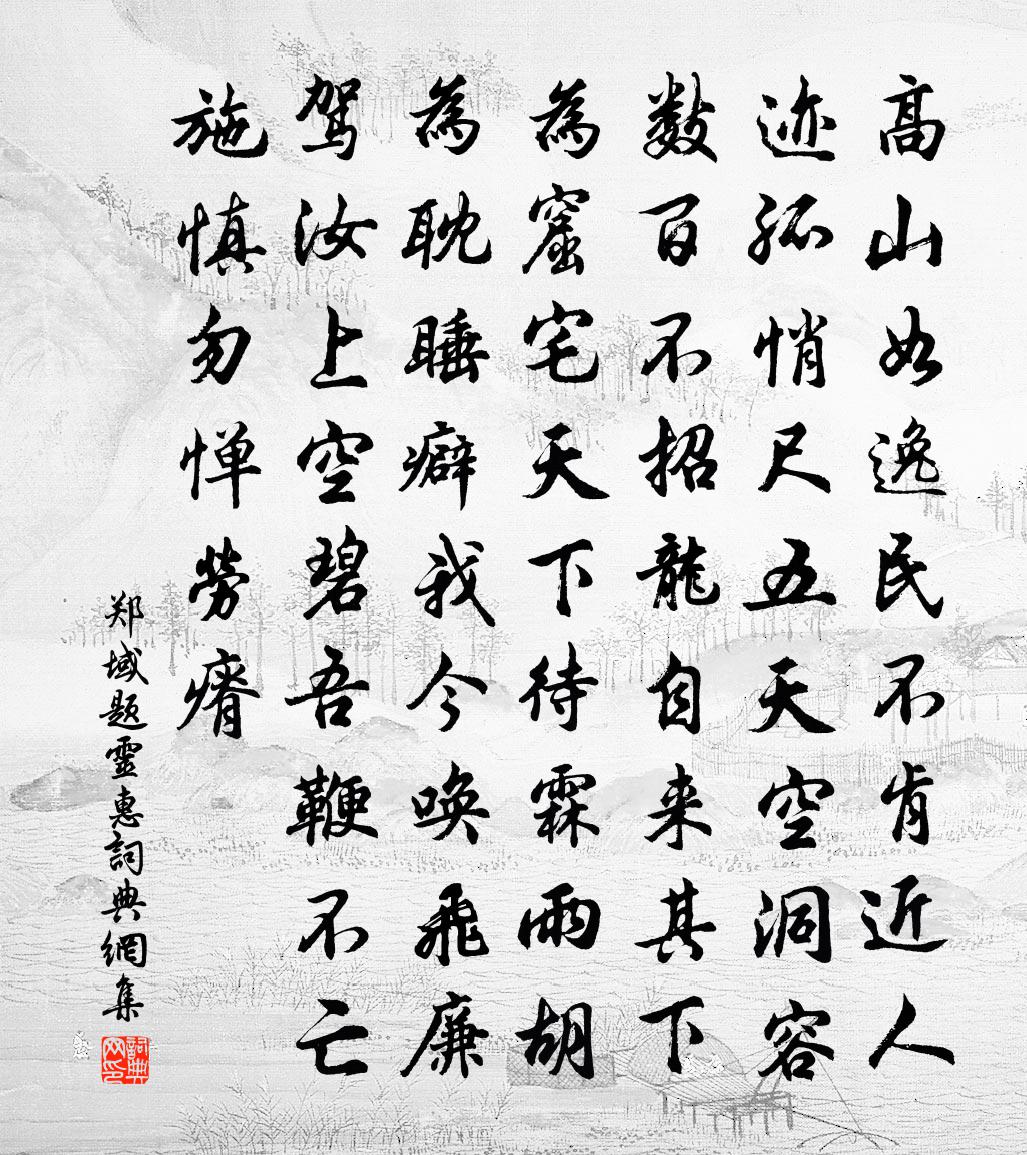 高山如逸民不肯近人
迹孤悄尺五天空洞容
数百不招龍自来其下
為窟宅天下待霖雨胡
為耽睡癖我今唤飛廉
驾汝上空碧吾鞭不亡
施慎勿惮勞瘠
郑域题靈惠詞典網集
詞典网印